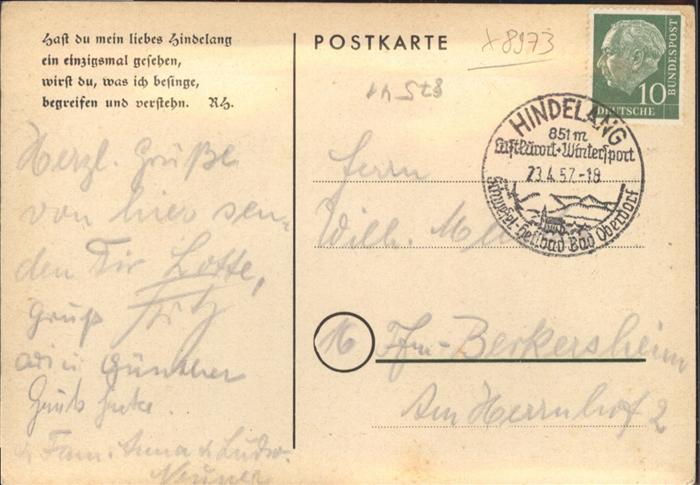 Hast du mein liebes Hindelang
ein einzigsmal gesehen,
wirst du, was ich besinge,
begreifen und verstehn. Rh.
Herzl. Grüße
von hier sen-
den Dir Lotte,
Gruß Fritz
Günther
Fam. Anna u. Ludw.
POSTKARTE
x8973
DEUTSCHE
BUNDESPOST
10
HINDELANG
851 m
Luftkurort + Wintersport
23.4.57.-18
Schwefel-Heilbad Bad Oberdorf
Herrn
Wilh.
16 Ffm-Berkersheim
Am Herrnhof 2